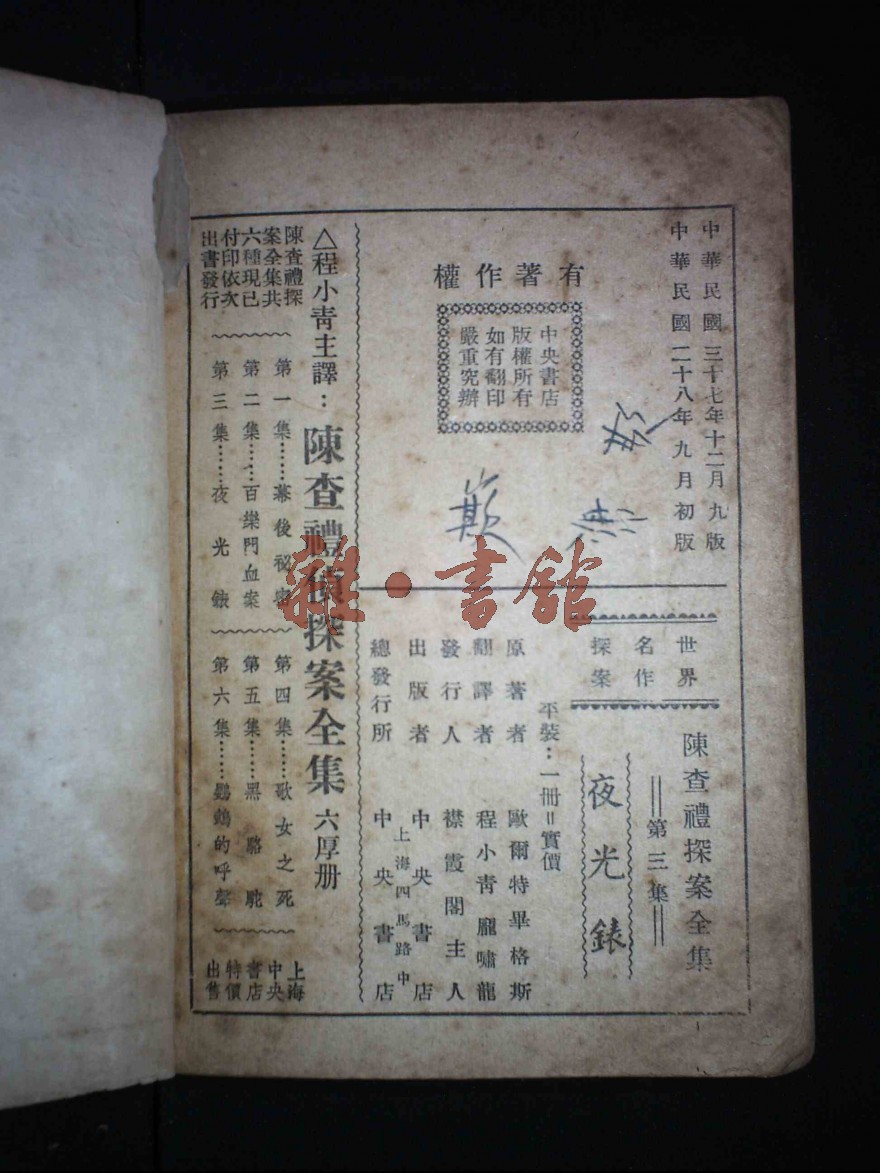 中華民國三十七年十二月九版
中華民國二十八年九月初版
有著作權
中央書店
版權所有
如有翻印
嚴重究辦
世界
名作
探案
陳查禮探案全集
第三集
夜光錶
平裝：一冊＝實價
原著者 歐爾特畢格斯
翻譯者 程小青龐嘯龍
發行人 襟霞閣主人
出版者 中央書店
上海四馬路中
總發行所 中央書店
△程小青主譯：陳查禮偵探案全集 六厚册
陳查禮探
案全集共
六種現已
付印依次
出書發行
第一集……幕後祕密
第二集……百樂門血案
第三集……夜光錶
第四集……歌女之死
第五集……黑駱駝
第六集……鸚鵡的呼聲
上海
中央
書店
特價
出售
雜·書館